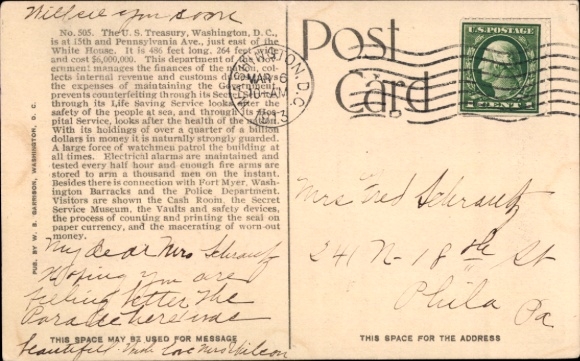 Will see you soon
No. 505. The U. S. Treasury, Washington, D. C.,
is at 15th and Pennsylvania Ave., just east of the
White House. It is 486 feet long, 264 feet wide
and cost $6,000,000. This department of the
ernment manages the finances of the nation, col-
lects internal revenue and customs d
the expenses of maintaining the Government,
prevents counterfeiting through its Secret
through its Life Saving Service looks after the
safety of the people at sea, and through its Hos-
pital Service, looks after the health of the nation.
With its holdings of over a quarter of a billion
dollars in money it is naturally strongly guarded.
A large force of watchmen patrol the building at
all times. Electrical alarms are maintained and
tested every half hour and enough fire arms are
stored to arm a thousand men on the instant.
Besides there is connection with Fort Myer, Wash-
ington Barracks and the Police Department.
Visitors are shown the Cash Room, the Secret
Service Museum, the Vaults and safety devices,
the process of counting and printing the seal on
paper currency, and the macerating of worn-out
money.
PUB. BY W. B. GARRISON, WASHINGTON, D. C.
My dear Mrs Schrautz
Hoping you are
feeling better The
Parade here was
THIS SPACE MAY BE USED FOR MESSAGE
beautiful with love Mrs Wilson
Post
Card
WASHINGTON, D.C.
MAR 6
AM
U.S. POSTAGE
1 CENT 1
Mrs Fred Schrautz
241 N-18th St
Phila Pa
THIS SPACE FOR THE ADDRESS